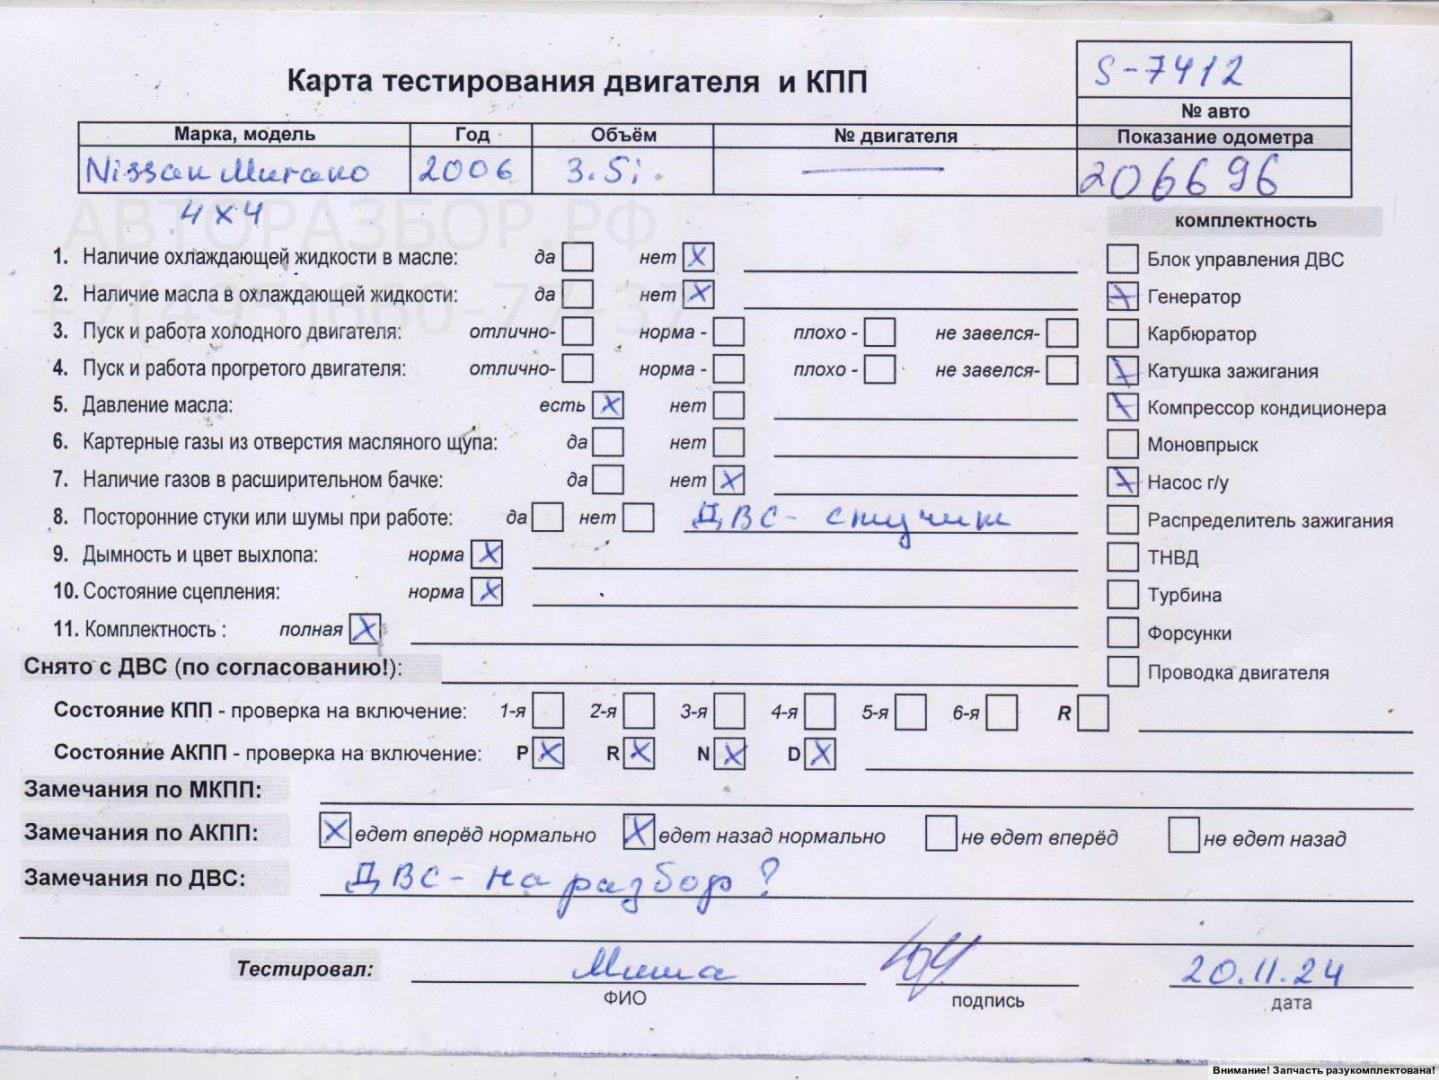 S-7412
Карта тестирования двигателя и КПП
№ авто
Марка, модель Год Объём № двигателя Показание одометра
Nissan Murano 2006 3.5i. 206696
4x4
АВТОРАЗБОР.РФ
комплектность
1. Наличие охлаждающей жидкости в масле: да нет X Блок управления ДВС
+7(495)660-77-37
2. Наличие масла в охлаждающей жидкости: да нет X X Генератор
3. Пуск и работа холодного двигателя: отлично- норма - плохо - не завелся- Карбюратор
4. Пуск и работа прогретого двигателя: отлично- норма - плохо - не завелся- X Катушка зажигания
5. Давление масла: есть X нет X Компрессор кондиционера
6. Картерные газы из отверстия масляного щупа: да нет Моновпрыск
7. Наличие газов в расширительном бачке: да нет X X Насос г/у
8. Посторонние стуки или шумы при работе: да нет ДВС - стучит Распределитель зажигания
9. Дымность и цвет выхлопа: норма X ТНВД
10. Состояние сцепления: норма X Турбина
11. Комплектность : полная X Форсунки
Снято с ДВС (по согласованию!): Проводка двигателя
Состояние КПП - проверка на включение: 1-я 2-я 3-я 4-я 5-я 6-я R
Состояние АКПП - проверка на включение: P X R X N X D X
Замечания по МКПП:
Замечания по АКПП: X едет вперёд нормально X едет назад нормально не едет вперёд не едет назад
Замечания по ДВС: ДВС - на разбор?
Тестировал: Миша 20.11.24
ФИО подпись дата
Внимание! Запчасть разукомплектована!